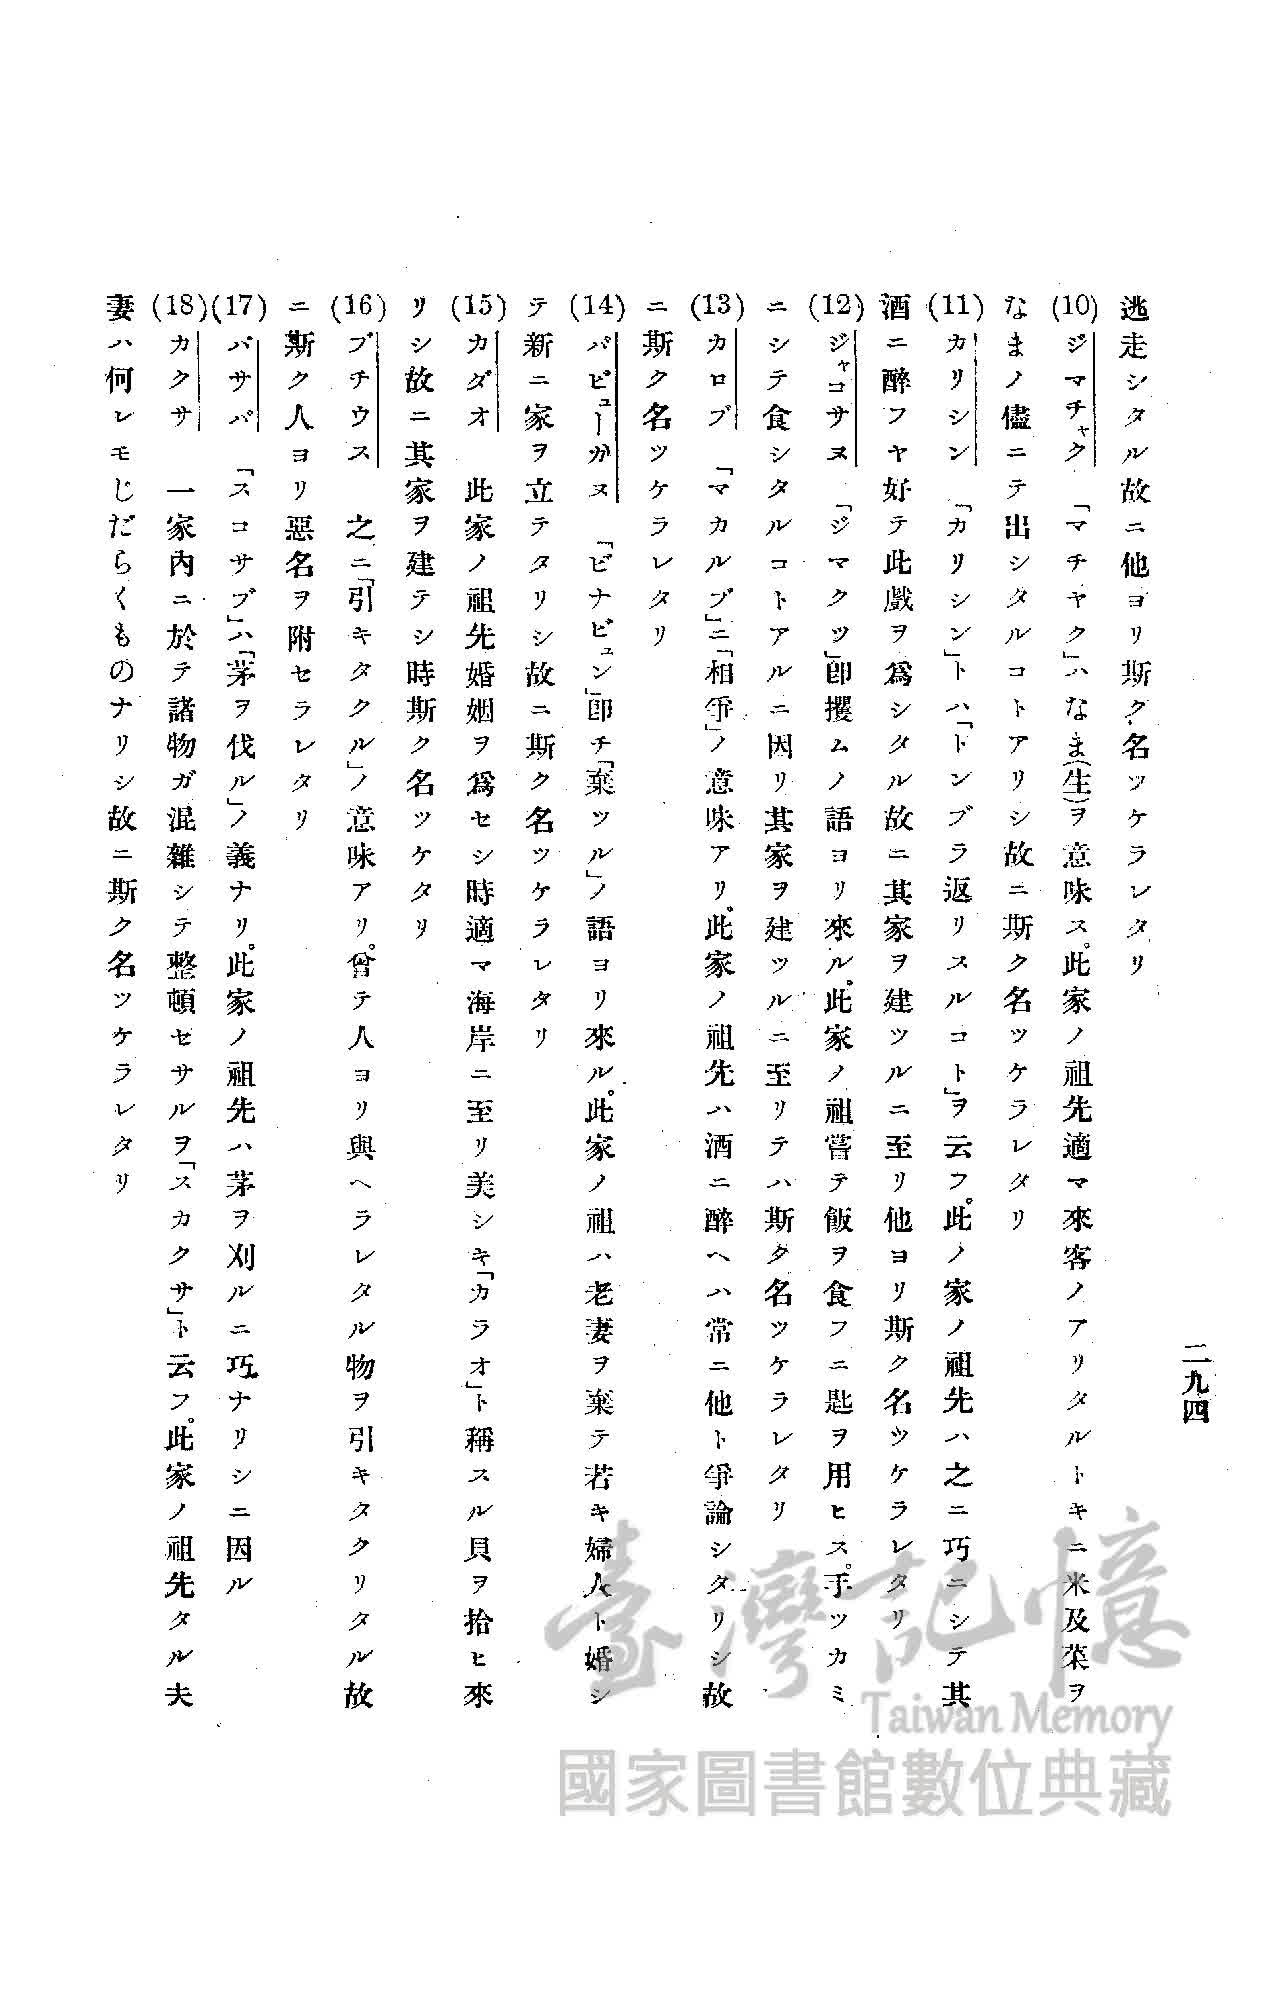 二九四
逃走シタル故ニ他ヨリ斯ク名ツケラレタリ
(10) ジマチャク 「マチヤク」ハなま(生)ヲ意味ス。此家ノ祖先適マ來客ノアリタルトキニ米及菜ヲ
なまノ儘ニテ出シタルコトアリシ故ニ斯ク名ツケラレタリ
(11) カリシン 「カリシン」トハ「トンブラ返リスルコト」ヲ云フ。此ノ家ノ祖先ハ之ニ巧ニシテ其
酒ニ醉フヤ好テ此戲ヲ爲シタル故ニ其家ヲ建ツルニ至リ他ヨリ斯ク名ツケラレタリ
(12) ジャコサヌ 「ジマクツ」卽撰ムノ語ヨリ來ル。此家ノ祖嘗テ飯ヲ食フニ匙ヲ用ヒス。手ツカミ
ニシテ食シタルコトアルニ因リ其家ヲ建ツルニ至リテハ斯ク名ツケラレタリ
(13) カロブ 「マカルブ」ニ「相爭」ノ意味アリ。此家ノ祖先ハ酒ニ醉ヘハ常ニ他ト爭論シタリシ故
ニ斯ク名ツケラレタリ
(14) バビューガヌ 「ビナビュン」卽チ「棄ツル」ノ語ヨリ來ル。此家ノ祖ハ老妻ヲ棄テ若キ婦人ト婚シ
テ新ニ家ヲ立テタリシ故ニ斯ク名ツケラレタリ
(15) カダオ 此家ノ祖先婚姻ヲ爲セシ時適マ海岸ニ至リ美シキ「カラオ」ト稱スル貝ヲ拾ヒ來
リシ故ニ其家ヲ建テシ時斯ク名ツケタリ
(16) ブチウス 之ニ「引キタクル」ノ意味アリ。曾テ人ヨリ與ヘラレタル物ヲ引キタクリタル故
ニ斯ク人ヨリ惡名ヲ附セラレタリ
(17) バサバ 「スコサブ」ハ「茅ヲ伐ル」ノ義ナリ。此家ノ祖先ハ茅ヲ刈ルニ巧ナリシニ因ル
(18) カクサ 一家內ニ於テ諸物ガ混雜シテ整頓セサルヲ「スカクサ」ト云フ。此家ノ祖先タル夫
妻ハ何レモじだらくものナリシ故ニ斯ク名ツケラレタリ
臺灣記憶
Taiwan Memory
國家圖書館數位典藏